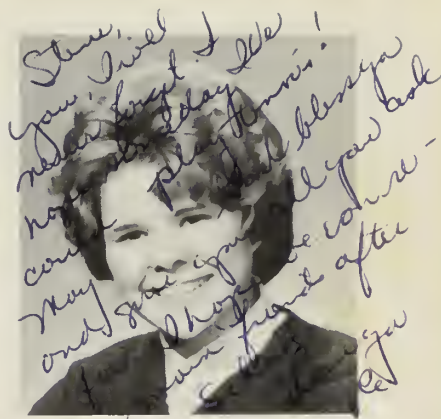 Steve,
you, I will
never forget. I
hope someday we
could play tennis!
May God bless you
and give you all you ask
for. I hope we can re-
main friends after